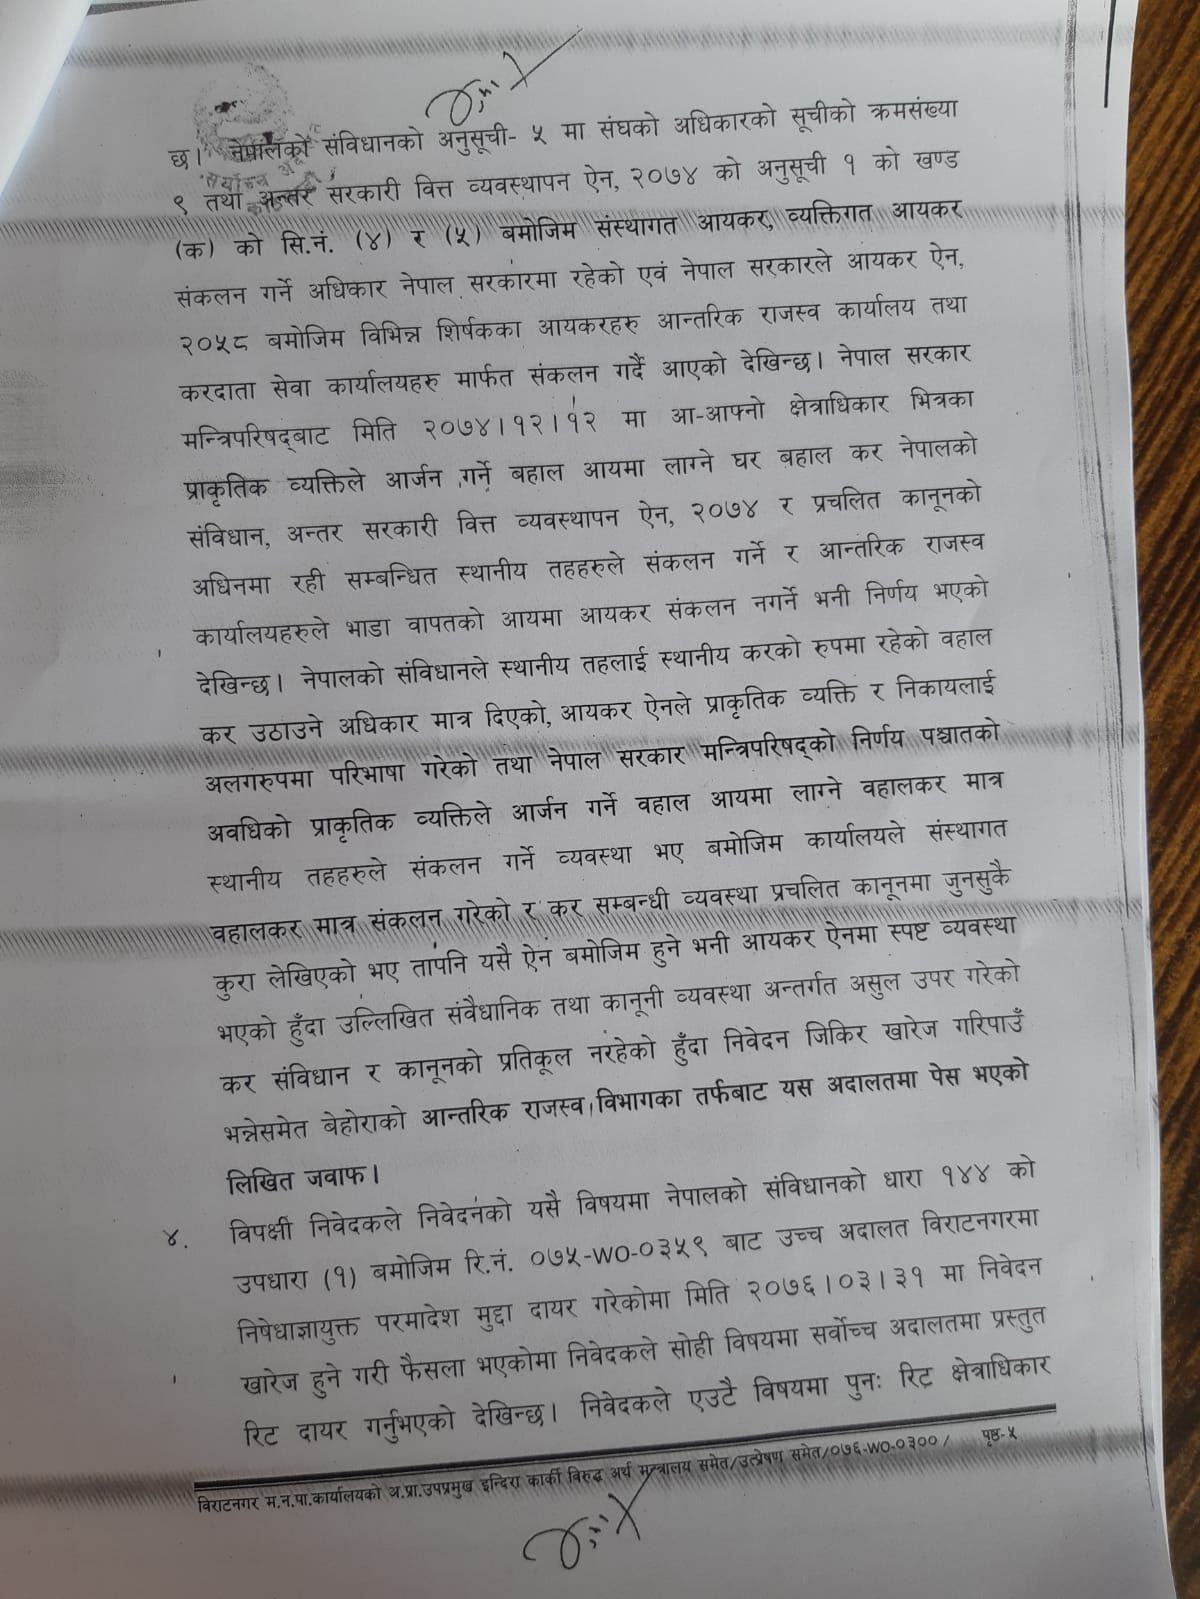 छ। नेपालको संविधानको अनुसूची- ५ मा संघको अधिकारको सूचीको क्रमसंख्या
९ तथा अन्तर सरकारी वित्त व्यवस्थापन ऐन, २०७४ को अनुसूची १ को खण्ड
(क) को सि.नं. (४) र (५) बमोजिम संस्थागत आयकर, व्यक्तिगत आयकर
संकलन गर्ने अधिकार नेपाल सरकारमा रहेको एवं नेपाल सरकारले आयकर ऐन,
२०५८ बमोजिम विभिन्न शिर्षकका आयकरहरु आन्तरिक राजस्व कार्यालय तथा
करदाता सेवा कार्यालयहरु मार्फत संकलन गर्दै आएको देखिन्छ। नेपाल सरकार
मन्त्रिपरिषद्बाट मिति २०७४।१२।१२ मा आ-आफ्नो क्षेत्राधिकार भित्रका
प्राकृतिक व्यक्तिले आर्जन गर्ने बहाल आयमा लाग्ने घर बहाल कर नेपालको
संविधान, अन्तर सरकारी वित्त व्यवस्थापन ऐन, २०७४ र प्रचलित कानूनको
अधिनमा रही सम्बन्धित स्थानीय तहहरुले संकलन गर्ने र आन्तरिक राजस्व
कार्यालयहरुले भाडा वापतको आयमा आयकर संकलन नगर्ने भनी निर्णय भएको
देखिन्छ। नेपालको संविधानले स्थानीय तहलाई स्थानीय करको रुपमा रहेको वहाल
कर उठाउने अधिकार मात्र दिएको, आयकर ऐनले प्राकृतिक व्यक्ति र निकायलाई
अलगरुपमा परिभाषा गरेको तथा नेपाल सरकार मन्त्रिपरिषद्को निर्णय पश्चातको
अवधिको प्राकृतिक व्यक्तिले आर्जन गर्ने वहाल आयमा लाग्ने वहालकर मात्र
स्थानीय तहहरुले संकलन गर्ने व्यवस्था भए बमोजिम कार्यालयले संस्थागत
वहालकर मात्र संकलन गरेको र कर सम्बन्धी व्यवस्था प्रचलित कानूनमा जुनसुकै
कुरा लेखिएको भए तापनि यसै ऐन बमोजिम हुने भनी आयकर ऐनमा स्पष्ट व्यवस्था
भएको हुँदा उल्लिखित संवैधानिक तथा कानूनी व्यवस्था अन्तर्गत असुल उपर गरेको
कर संविधान र कानूनको प्रतिकूल नरहेको हुँदा निवेदन जिकिर खारेज गरिपाउँ
भन्नेसमेत बेहोराको आन्तरिक राजस्व विभागका तर्फबाट यस अदालतमा पेस भएको
लिखित जवाफ।
४. विपक्षी निवेदकले निवेदनको यसै विषयमा नेपालको संविधानको धारा १४४ को
उपधारा (१) बमोजिम रि.नं. ०७५-WO-०३५९ बाट उच्च अदालत विराटनगरमा
निषेधाज्ञायुक्त परमादेश मुद्दा दायर गरेकोमा मिति २०७६।०३।३१ मा निवेदन
खारेज हुने गरी फैसला भएकोमा निवेदकले सोही विषयमा सर्वोच्च अदालतमा प्रस्तुत
रिट दायर गर्नुभएको देखिन्छ। निवेदकले एउटै विषयमा पुनः रिट क्षेत्राधिकार
विराटनगर म.न.पा.कार्यालयको अ.प्रा.उपप्रमुख इन्दिरा कार्की विरुद्ध अर्थ मन्त्रालय समेत/उत्प्रेषण समेत/०७६-WO-०३००/ पृष्ठ-५